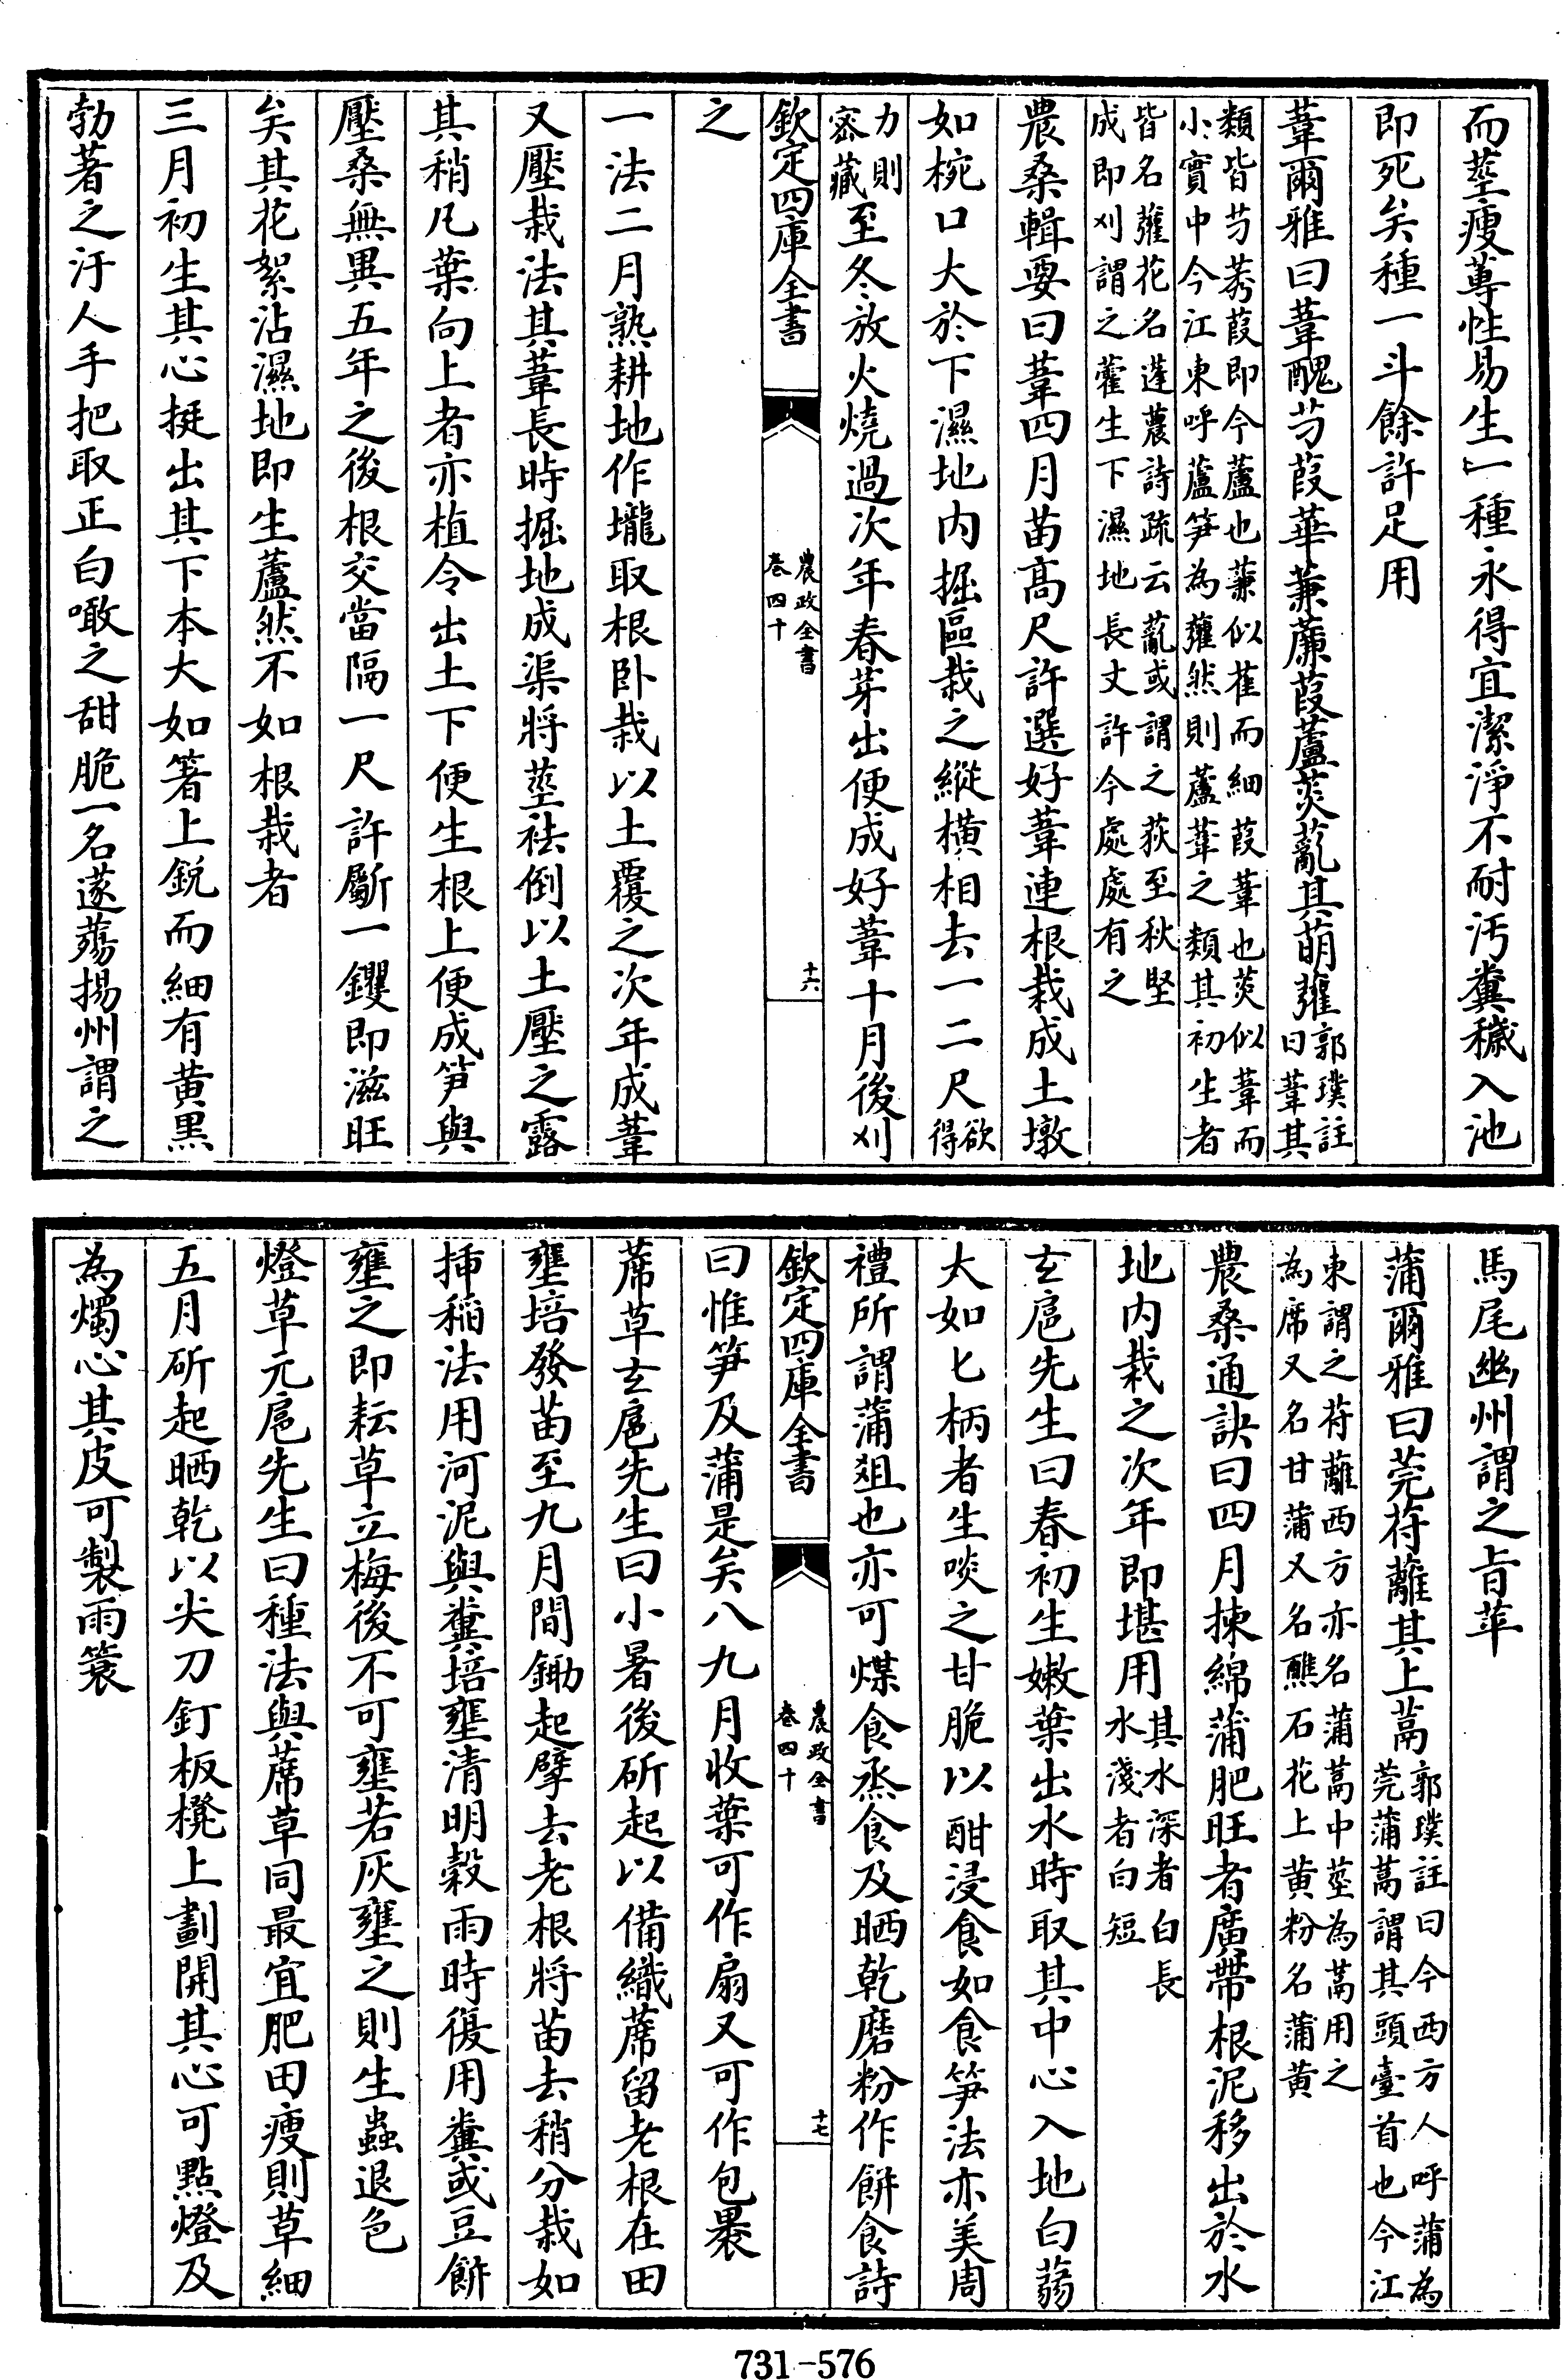 而莖瘦蓴性易生一種永得宜潔淨不耐汚糞穢入池
即死矣種一斗餘許足用
葦爾雅曰葦醜芀葭華蒹薕葭蘆菼薍其萌虇郭璞註曰葦其
類皆芀莠葭即今蘆也蒹似萑而細葭葦也菼似葦而
小實中今江東呼蘆笋為虇然則蘆葦之類其初生者
皆名虇花名蓬蕽詩疏云薍或謂之荻至秋堅
成即刈謂之雚生下濕地長丈許今處處有之
農桑輯要曰葦四月苗高尺許選好葦連根栽成土墩
如椀口大於下濕地内掘區栽之縱橫相去一二尺欲得
力則宻藏至冬放火燒過次年春芽出便成好葦十月後刈
欽定四庫全書
農政全書
卷四十
十六
之
一法二月熟耕地作壠取根卧栽以土覆之次年成葦
又壓栽法其葦長時掘地成渠將莖袪倒以土壓之露
其稍凡葉向上者亦植令出土下便生根上便成笋與
壓桑無異五年之後根交當隔一尺許斸一钁即滋旺
矣其花絮沾濕地即生蘆然不如根栽者
三月初生其心挺出其下本大如箸上銳而細有黄黑
勃著之汙人手把取正白噉之甜脆一名蓫蕩揚州謂之
馬尾幽州謂之旨苹
蒲爾雅曰莞苻蘺其上蒚郭璞註曰今西方人呼蒲為
莞蒲蒚謂其頭臺首也今江
東謂之苻蘺西方亦名蒲蒚中莖為蒚用之
為席又名甘蒲又名醮石花上黄粉名蒲黄
農桑通訣曰四月揀綿蒲肥旺者廣帶根泥移出於水
地内栽之次年即堪用其水深者白長
水淺者白短
玄扈先生曰春初生嫩葉出水時取其中心入地白蒻
大如匕柄者生啖之甘脆以酣浸食如食笋法亦美周
禮所謂蒲葅也亦可煤食烝食及晒乾磨粉作餅食詩
欽定四庫全書
農政全書
卷四十
十七
曰惟笋及蒲是矣八九月收葉可作扇又可作包裹
蓆草玄扈先生曰小暑後斫起以備織蓆留老根在田
壅培發苗至九月間鋤起擘去老根將苗去稍分栽如
挿稻法用河泥與糞培壅清明穀雨時復用糞或豆餅
壅之即耘草立梅後不可壅若灰壅之則生蟲退色
燈草元扈先生曰種法與蓆草同最宜肥田瘦則草細
五月斫起晒乾以尖刀釘板櫈上劃開其心可點燈及
為燭心其皮可製雨簑
731-576